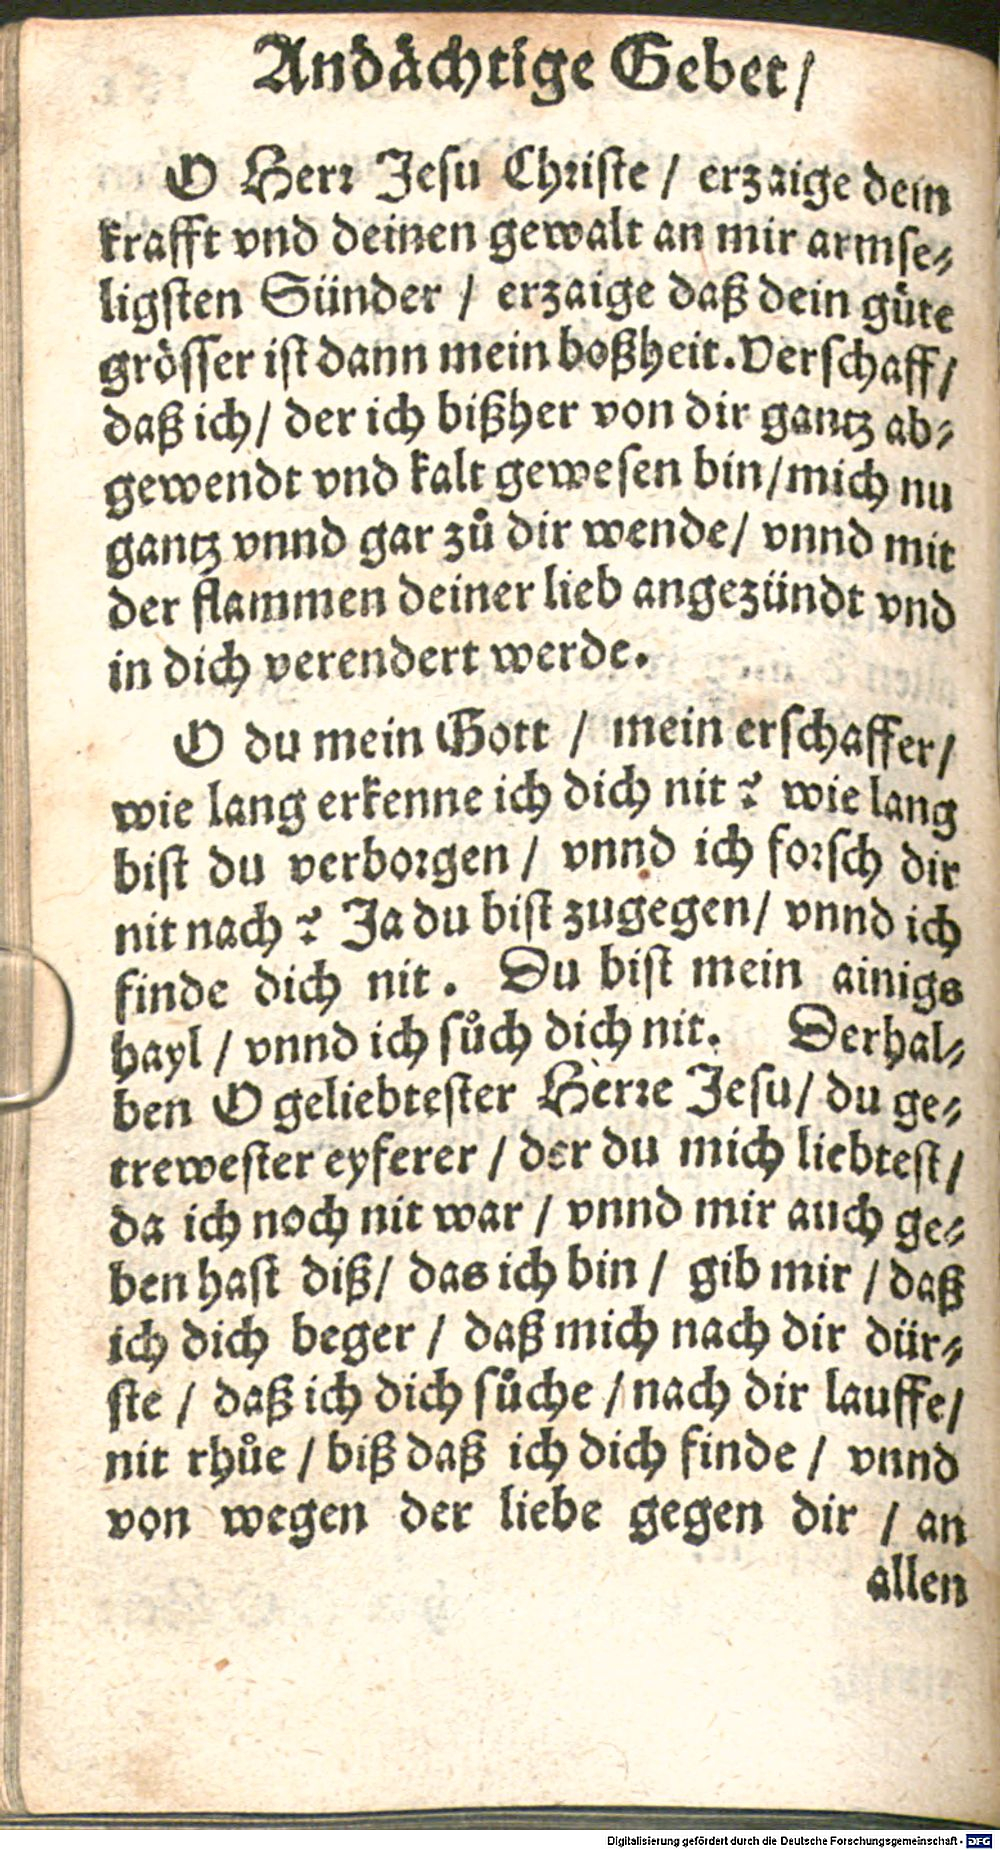 Andächtige Gebet/
O Herr Jesu Christe / erzaige dein
krafft vnd deinen gewalt an mir armse-
ligsten Sünder / erzaige daß dein güte
grösser ist dann mein boßheit. Verschaff/
daß ich/ der ich bißher von dir gantz ab-
gewendt vnd kalt gewesen bin/mich nu
gantz vnnd gar zů dir wende/ vnnd mit
der flammen deiner lieb angezündt vnd
in dich verendert werde.
O du mein Gott / mein erschaffer/
wie lang erkenne ich dich nit? wie lang
bist du verborgen / vnnd ich forsch dir
nit nach? Ja du bist zugegen/ vnnd ich
finde dich nit. Du bist mein ainigs
hayl / vnnd ich sůch dich nit. Derhal-
ben O geliebtester Herre Jesu/ du ge-
trewester eyferer / der du mich liebtest/
da ich noch nit war / vnnd mir auch ge-
ben hast diß/ das ich bin / gib mir / daß
ich dich beger / daß mich nach dir dür-
ste / daß ich dich sůche / nach dir lauffe/
nit rhůe / biß daß ich dich finde / vnnd
von wegen der liebe gegen dir / an
allen
Digitalisierung gefördert durch die Deutsche Forschungsgemeinschaft - DFG